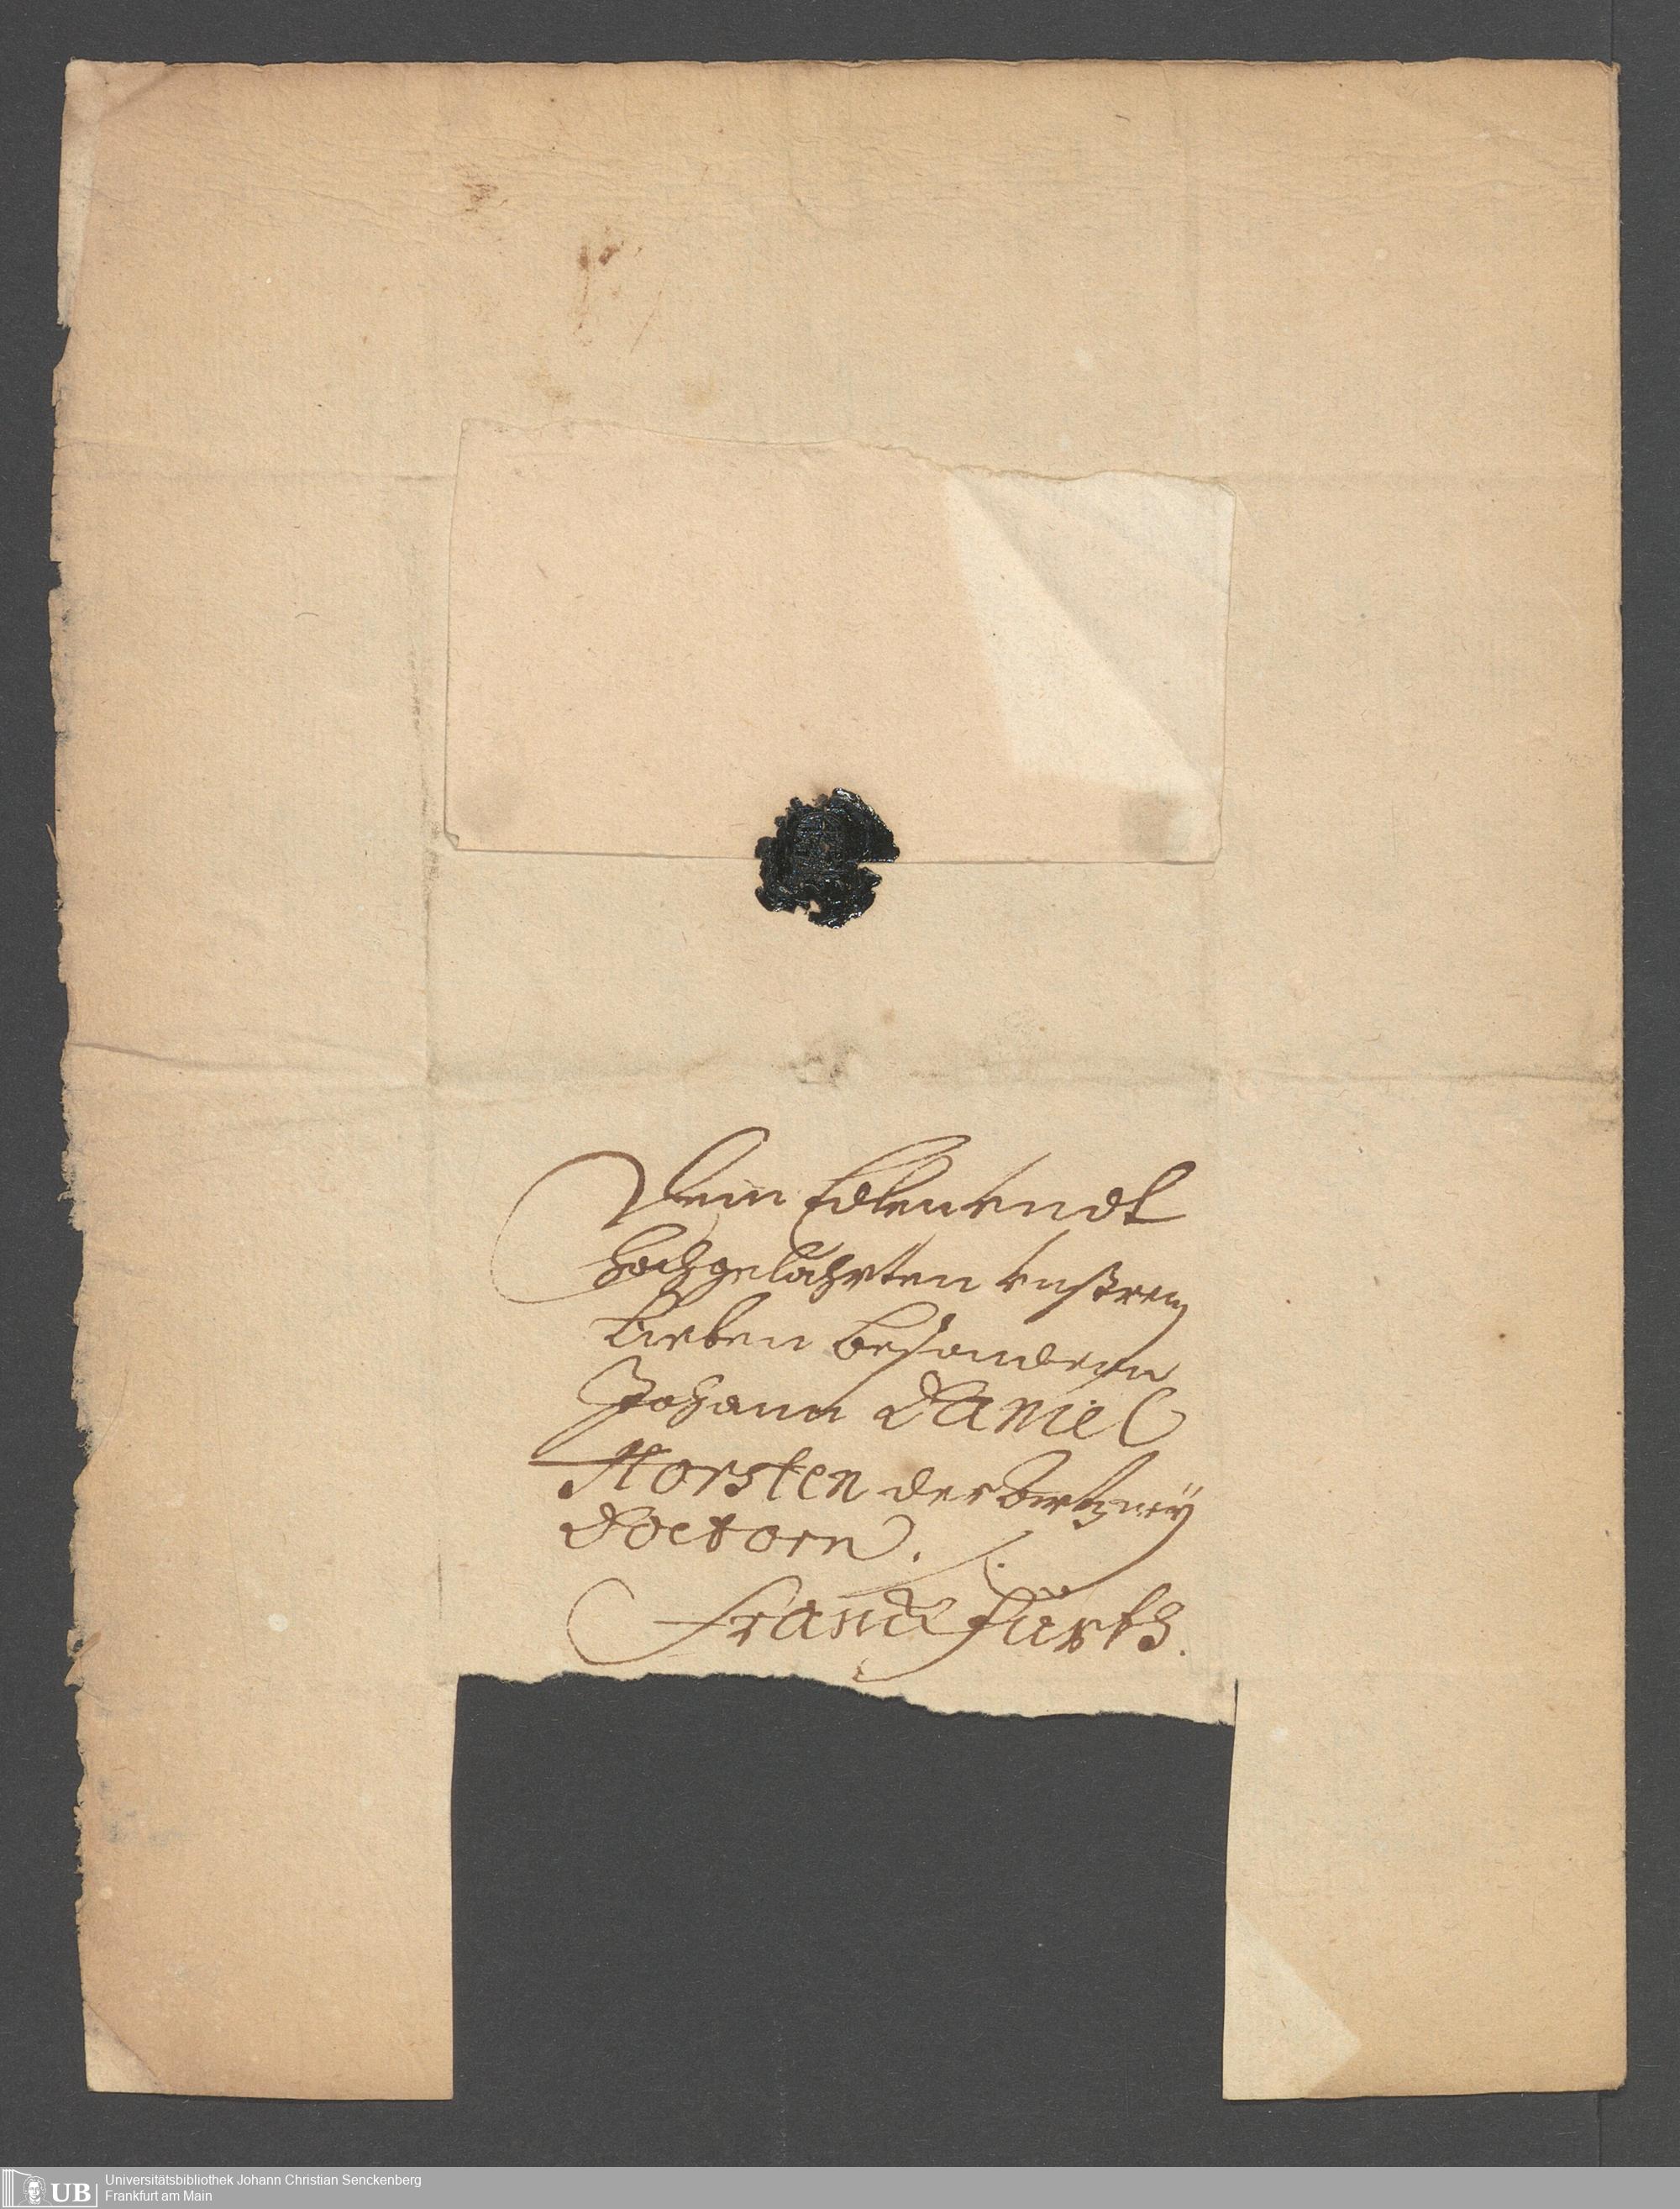 Dem Edlen vndt
Hochgelährten vnßrem
Lieben besondern
Johann Daniel
Horsten der Artzney
Doctorn.
Franckfürth.
UB
Universitätsbibliothek Johann Christian Senckenberg
Frankfurt am Main